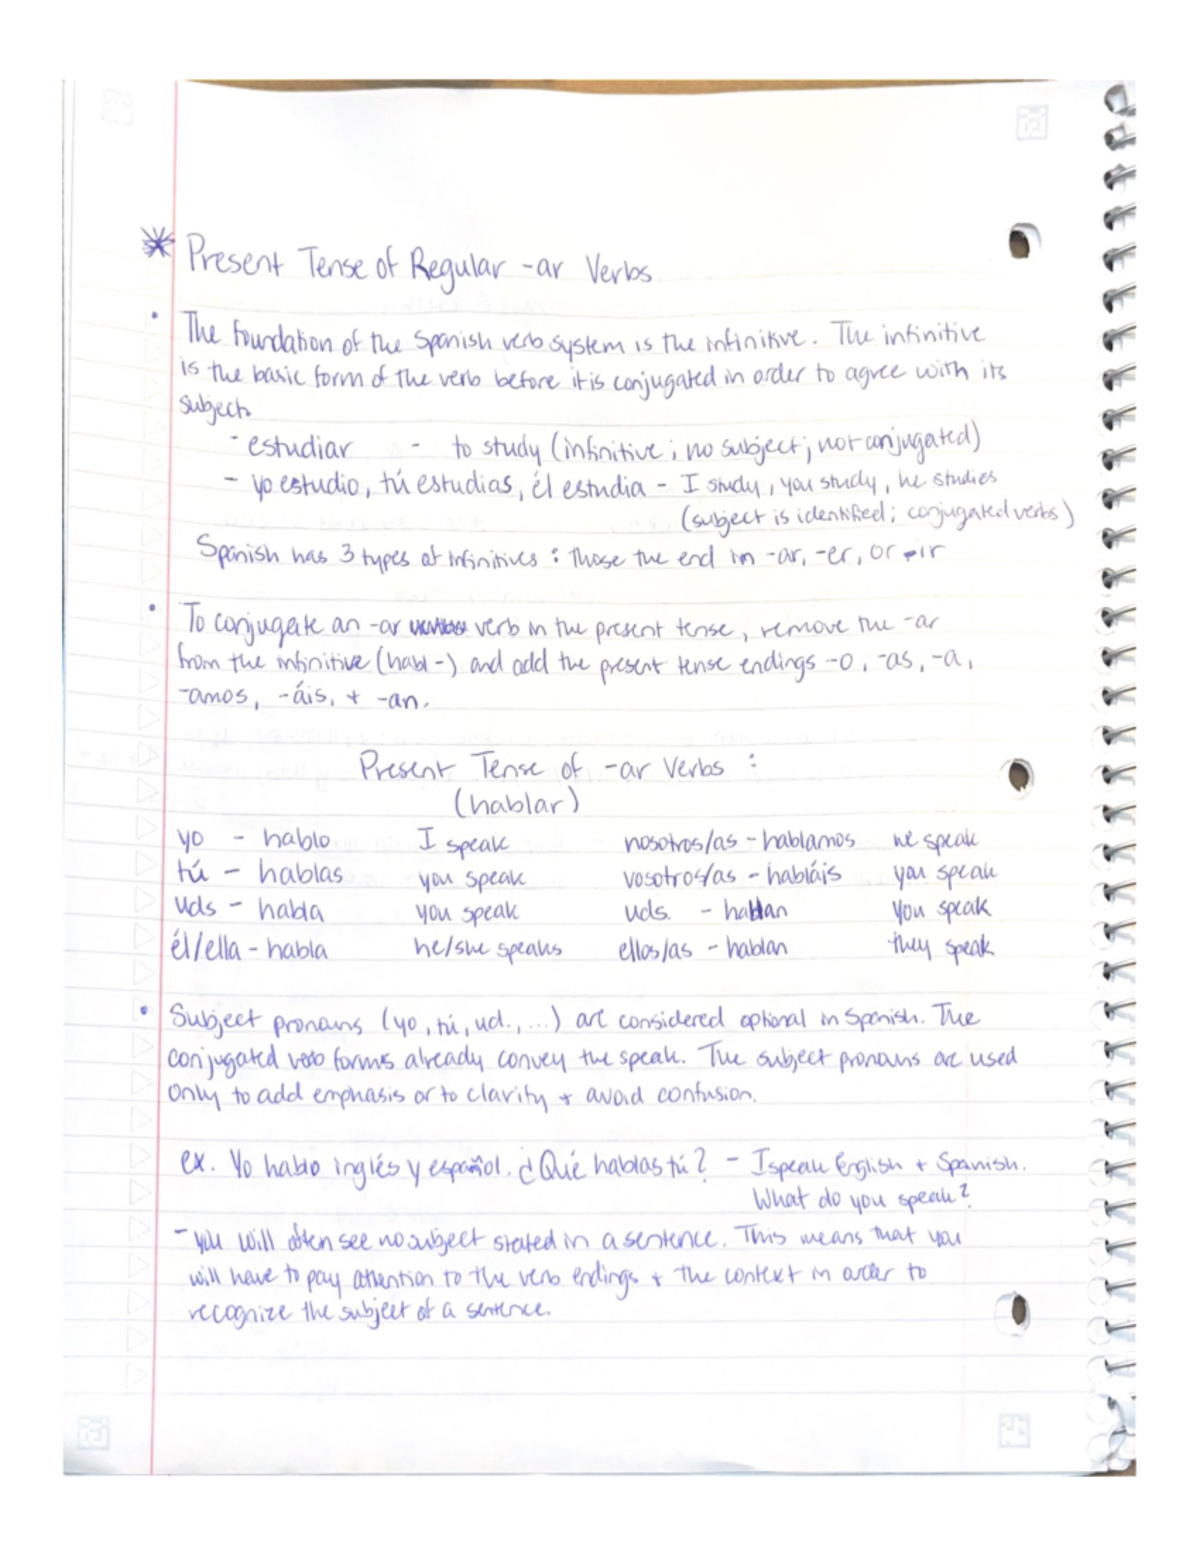 * Present Tense of Regular -ar Verbs
• The foundation of the Spanish verb system is the infinitive. The infinitive
is the basic form of the verb before it is conjugated in order to agree with its
subject.
- estudiar - to study (infinitive; no subject; not conjugated)
- yo estudio, tú estudias, él estudia - I study, you study, he studies
(subject is identified; conjugated verbs)
Spanish has 3 types of infinitives: Those the end in -ar, -er, or -ir
• To conjugate an -ar verb in the present tense, remove the -ar
from the infinitive (habl-) and add the present tense endings -o, -as, -a,
-amos, -áis, + -an.
Present Tense of -ar Verbs:
(hablar)
yo - hablo I speak nosotros/as - hablamos we speak
tú - hablas you speak vosotros/as - habláis you speak
Uds - habla you speak uds. - hablan you speak
él/ella - habla he/she speaks ellos/as - hablan they speak
• Subject pronouns (yo, tú, ud., ...) are considered optional in Spanish. The
conjugated verb forms already convey the speak. The subject pronouns are used
only to add emphasis or to clarity + avoid confusion.
ex. Yo hablo inglés y español. ¿Qué hablas tú? - I speak English + Spanish.
What do you speak?
- you will often see no subject stated in a sentence. This means that you
will have to pay attention to the verb endings + the context in order to
recognize the subject of a sentence.